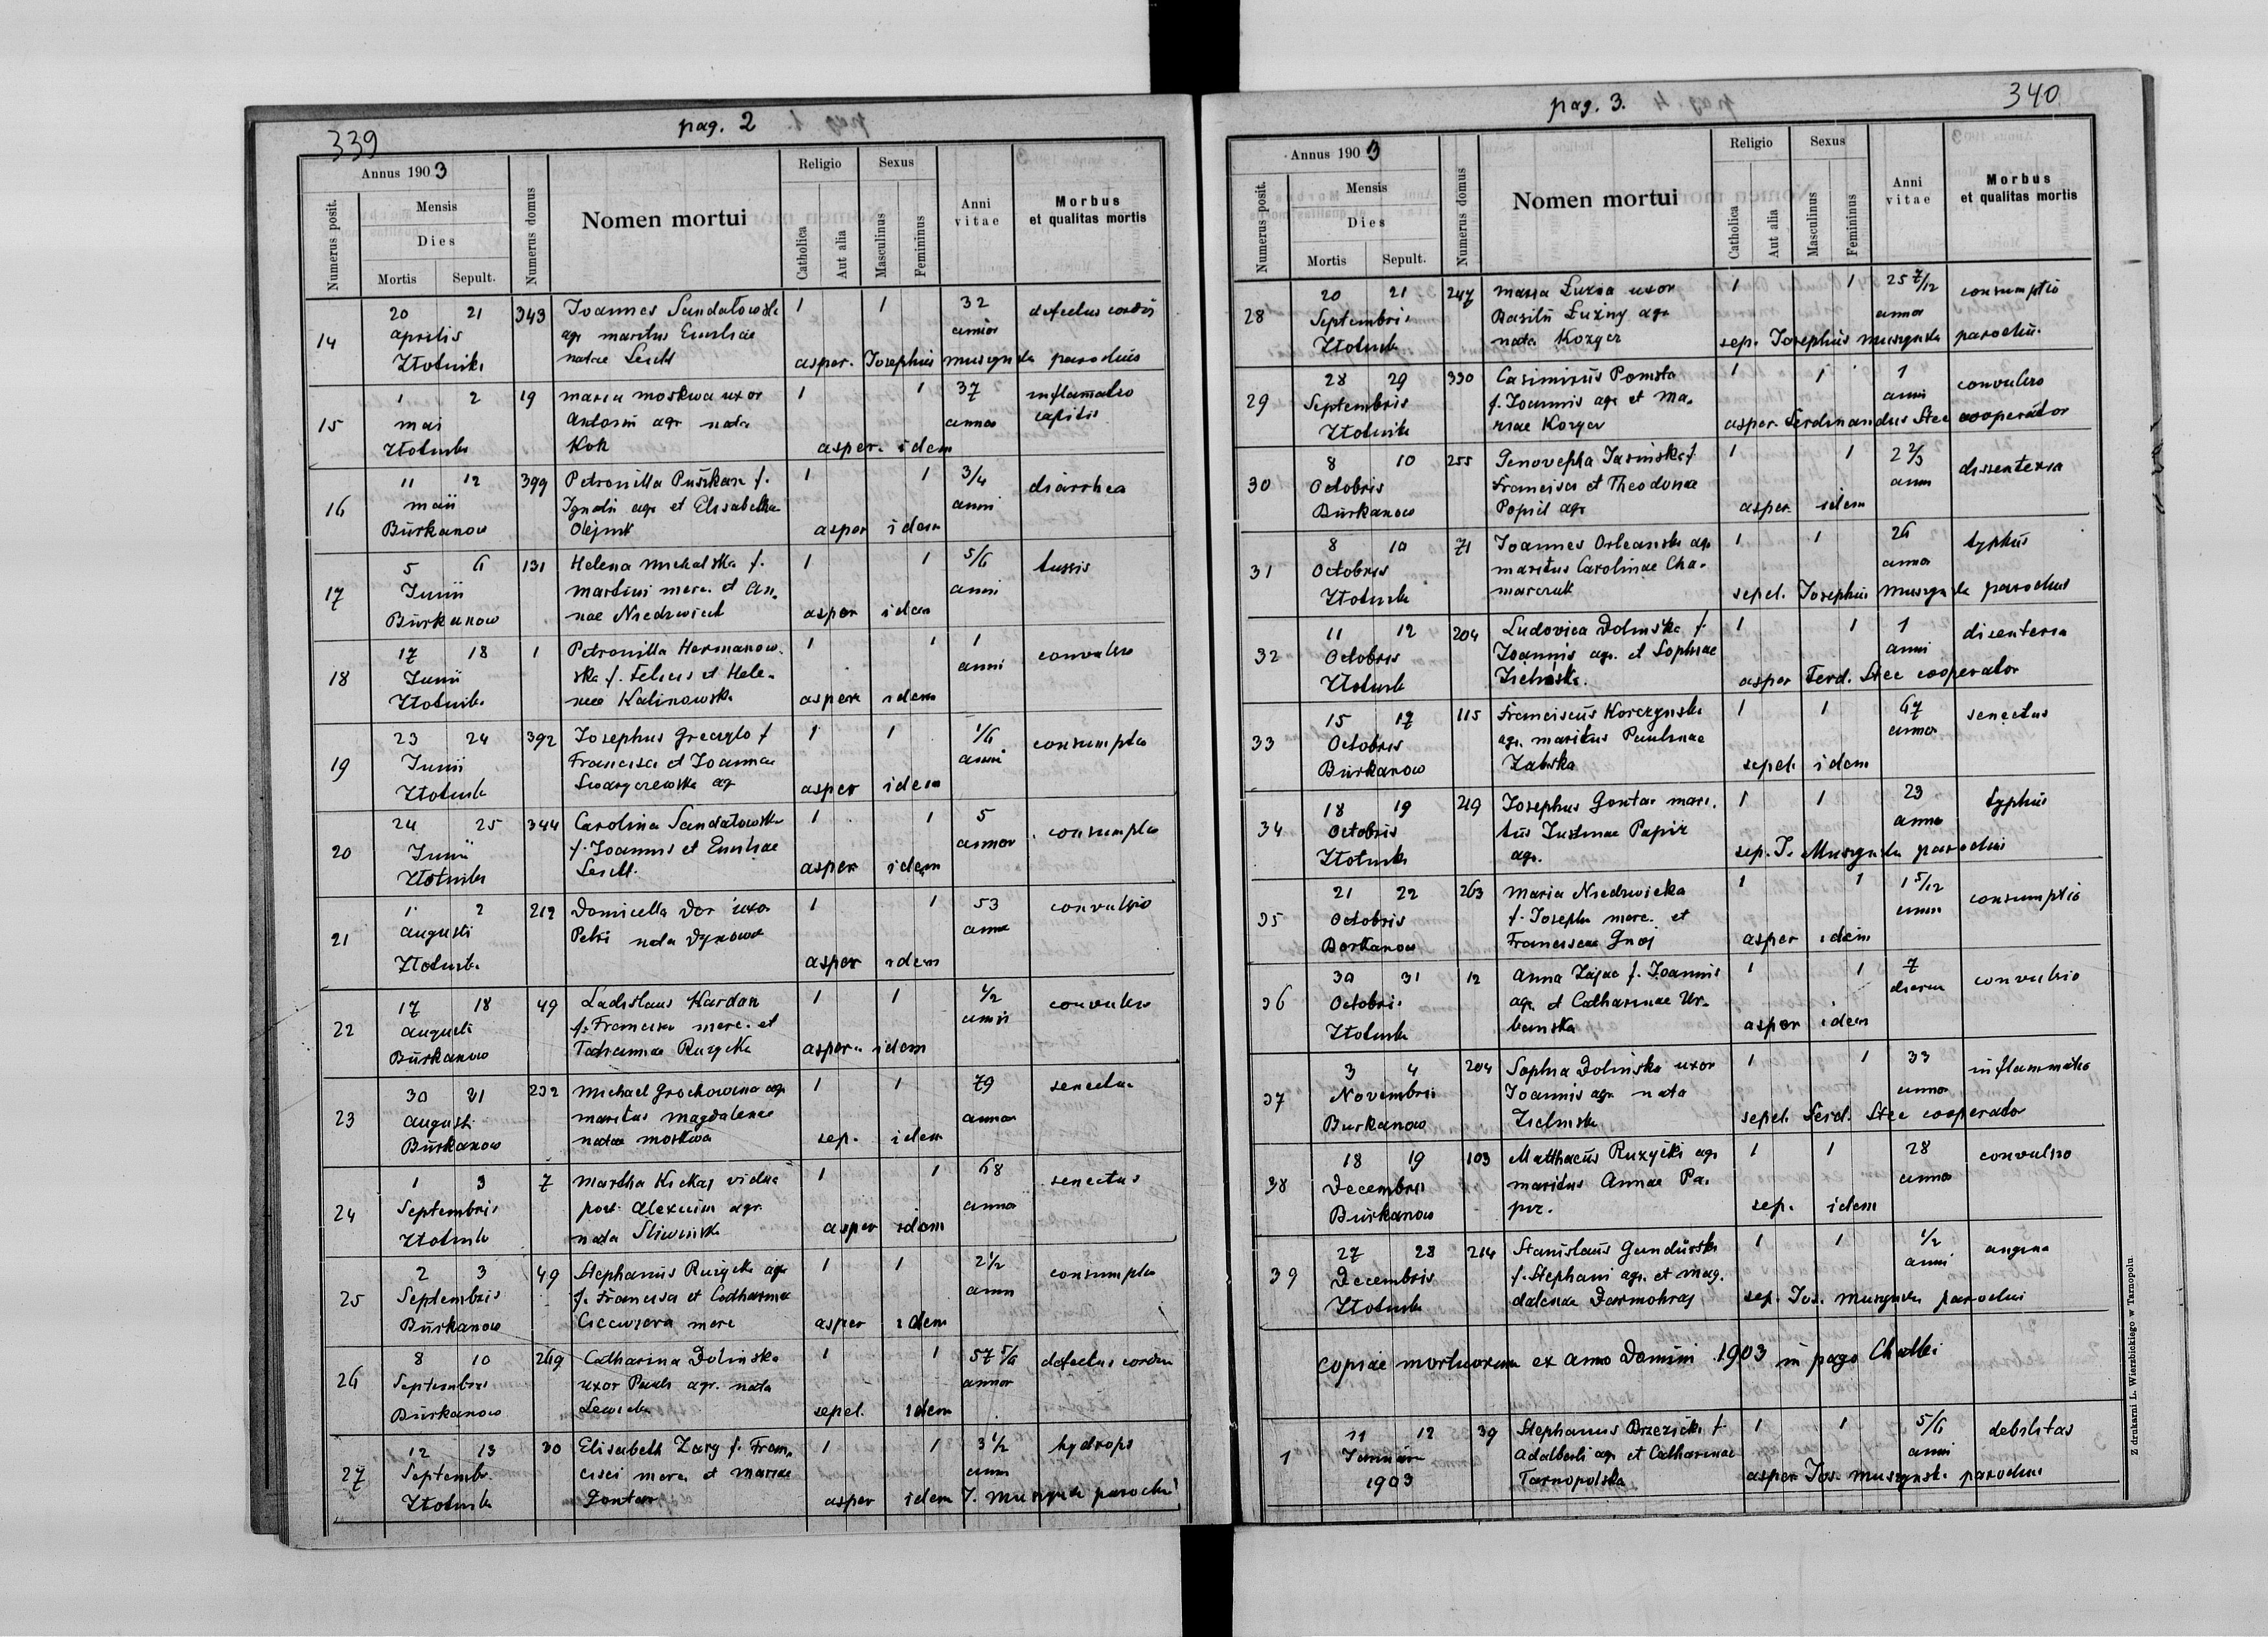 339
pag. 2
Annus 1903
Numerus posit.
Mensis
Dies
Mortis Sepult.
Numerus domus
Nomen mortui
Religio
Catholica
Aut alia
Sexus
Masculinus
Femininus
Anni vitae
Morbus
et qualitas mortis
14 20 21 343 Joannes Sandałowski 1 1 32 defectus cordis
aprilis agr maritus Emiliae annor
Złotniki natae asper. Josephus Muszyński parochus
15 1 2 19 Maria Moskwa uxor 1 1 37 inflamatio
mai Antonii agr nata annor capitis
Złotniki Kok asper. idem
16 11 12 399 Petronilla Puszkar f. 1 1 3/4 diarrhea
maii Ignatii agr et Elisabetha anni
Burkanow Olejnik asper idem
17 5 6 131 Helena Michalska f. 1 1 5/6 tussis
Junii Martini merc. et An- anni
Burkanow nae Niedzwiecki asper idem
18 17 18 1 Petronilla Hermanow- 1 1 1 convulsio
Junii ska f. Felicis et Hele- anni
Złotniki nae Kalinowska asper idem
19 23 24 392 Josephus Greczylo f 1 1 1/6 consumptio
Junii Francisci et Joannae anni
Złotniki Swaryczewska agr asper idem
20 24 25 344 Carolina Sandałowska 1 1 5 consumptio
Junii f. Joannis et Emiliae annor
Złotniki asper idem
21 1 2 212 Domicella Dor uxor 1 1 53 convulsio
augusti Petri nata Dynowa annor
Złotniki asper idem
22 17 18 49 Ladislaus Kardan 1 1 1/2 convulsio
augusti f. Francisci merc. et anni
Burkanow Ruzycka asper. idem
23 30 31 232 Michael Grochowina agr 1 1 79 senectus
augusti maritus Magdalenae annor
Burkanow natae Moskwa sep. idem
24 1 3 7 Martha Kickaj vidua 1 1 68 senectus
Septembris post agr. annor
Złotniki nata Sliwinska asper idem
25 2 3 49 Stephanus Ruzycki agr 1 1 2 1/2 consumptio
Septembris f. Francisci et Catharinae anni
Burkanow merc asper idem
26 8 10 269 Catharina Dolinska 1 1 57 5/6 defectus cordis
Septembris uxor Pauli agr. nata annor
Burkanow Lewicka sepel. idem
27 12 13 30 Elisabeth Zary f. Fran- 1 1 3 1/2 hydrops
Septembr. cisci merc. et Mariae anni
Złotniki Gontar asper idem J. Muszyński parochus
pag. 3.
340
Annus 1903
Numerus posit.
Mensis
Dies
Mortis Sepult.
Numerus domus
Nomen mortui
Religio
Catholica
Aut alia
Sexus
Masculinus
Femininus
Anni vitae
Morbus
et qualitas mortis
28 20 21 247 Maria Łuzna uxor 1 1 25 7/12 consumptio
Septembris Basilii Łuzny agr annor
Złotniki nata Kozyer sep. Josephus Muszyński parochus
29 28 29 330 Casimirus Pomsta 1 1 1 convulsio
Septembris f. Joannis agr et Ma- anni
Złotniki riae Kozyer asper. Ferdinandus Stec cooperator
30 8 10 255 Genovepha Jasinska f 1 1 2 2/3 dissenteria
Octobris Francisci et Theodorae anni
Burkanow Popiel agr asper idem
31 8 10 71 Joannes Orleanski agr 1 1 26 typhus
Octobris maritus Carolinae Cha- annor
Złotniki marczuk sepel. Josephus Muszyński parochus
32 11 12 204 Ludovica Dolinska f 1 1 1 disenteria
Octobris Joannis agr. et Sophiae anni
Złotniki Zielinska. asper Ferd. Stec cooperator
33 15 17 115 Franciscus Korczynski 1 1 67 senectus
Octobris agr. maritus Paulinae annor
Burkanow Zabska sepel. idem
34 18 19 219 Josephus Gontar mari- 1 1 23 typhus
Octobris tus Justinae Papiz annor
Złotniki agr. sep. J. Muszyński parochus
35 21 22 263 Maria Niedzwiecka 1 1 1 5/12 consumptio
Octobris f. Josephi merc. et anni
Borkanow Franciscae Gnoj asper idem
36 30 31 12 Anna Zając f. Joannis 1 1 7 convulsio
Octobris agr. et Catharinae Ur- dierum
Złotniki banska asper idem
37 3 4 204 Sophia Dolinska uxor 1 1 33 inflammatio
Novembris Joannis agr nata annor
Burkanow Zielinska sepel. Ferd. Stec cooperator
38 18 19 103 Matthaeus Ruzycki agr 1 1 28 convulsio
Decembris maritus Annae Pa- annor
Burkanow piz. sep. idem
39 27 28 214 Stanislaus Gandurski 1 1 1/2 angina
Decembris f. Stephani agr. et Mag- anni
Złotniki dalenae Darmohraj sep. Jos. Muszyński parochus
copiae mortuorum ex anno Domini 1903 in pago Chatki
1 11 12 39 Stephanus Brzezicki f 1 1 5/6 debilitas
Januarii Adalberti agr et Catharinae anni
1903 Tarnopolska asper Jos. Muszyński parochus
Z drukarni L. Wierzbickiego w Tarnopolu